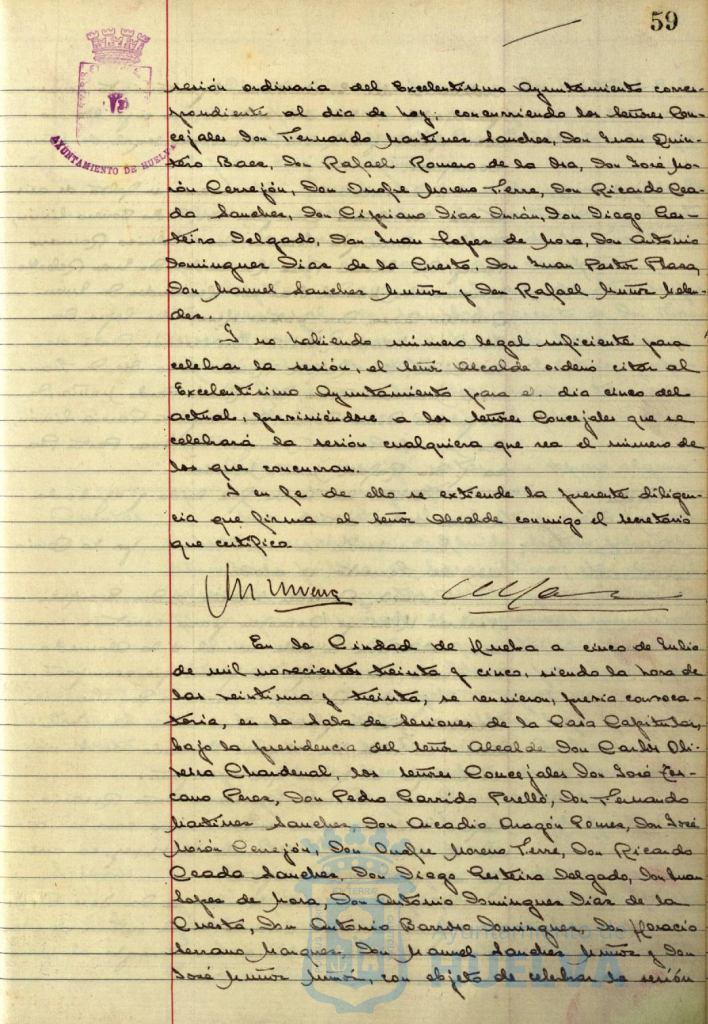 59
AYUNTAMIENTO DE HUELVA
sesión ordinaria del Excelentísimo Ayuntamiento corres-
pondiente al día de hoy; concurriendo los señores Con-
cejales Don Fernando Martínez Sánchez, Don Juan Quin-
tero Baez, Don Rafael Romero de la Osa, Don José Mo-
rón Cerrejón, Don Onofre Moreno Terre, Don Ricardo Cea-
da Sánchez, Don Cipriano Díaz Durán, Don Diego Ges-
teira Delgado, Don Juan López de Mora, Don Antonio
Domínguez Díaz de la Cuesta, Don Juan Pastor Plaza,
Don Manuel Sánchez Muñoz y Don Rafael Muñoz Melen-
dez.
Y no habiendo número legal suficiente para
celebrar la sesión, el señor Alcalde ordenó citar al
Excelentísimo Ayuntamiento para el día cinco del
actual, previniéndose a los señores Concejales que se
celebrará la sesión cualquiera que sea el número de
los que concurran.
Y en fe de ello se extiende la presente diligen-
cia que firma el señor Alcalde conmigo el secretario
que certifica.
En la Ciudad de Huelva a cinco de Julio
de mil novecientos treinta y cinco, siendo la hora de
las veintiuna y treinta, se reunieron, previa convoca-
toria, en la Sala de Sesiones de la Casa Capitular,
bajo la presidencia del señor Alcalde Don Carlos Oli-
veira Chardenal, los señores Concejales Don José Lez-
cano Perez, Don Pedro Garrido Perelló, Don Fernando
Martínez Sánchez, Don Arcadio Aragón Gomez, Don José
Morón Cerrejón, Don Onofre Moreno Terre, Don Ricardo
Ceada Sánchez, Don Diego Gesteira Delgado, Don Juan
López de Mora, Don Antonio Domínguez Díaz de la
Cuesta, Don Antonio Barroso Domínguez, Don Horacio
Serrano Marquez, Don Manuel Sánchez Muñoz y Don
José Muñoz, con objeto de celebrar la sesión